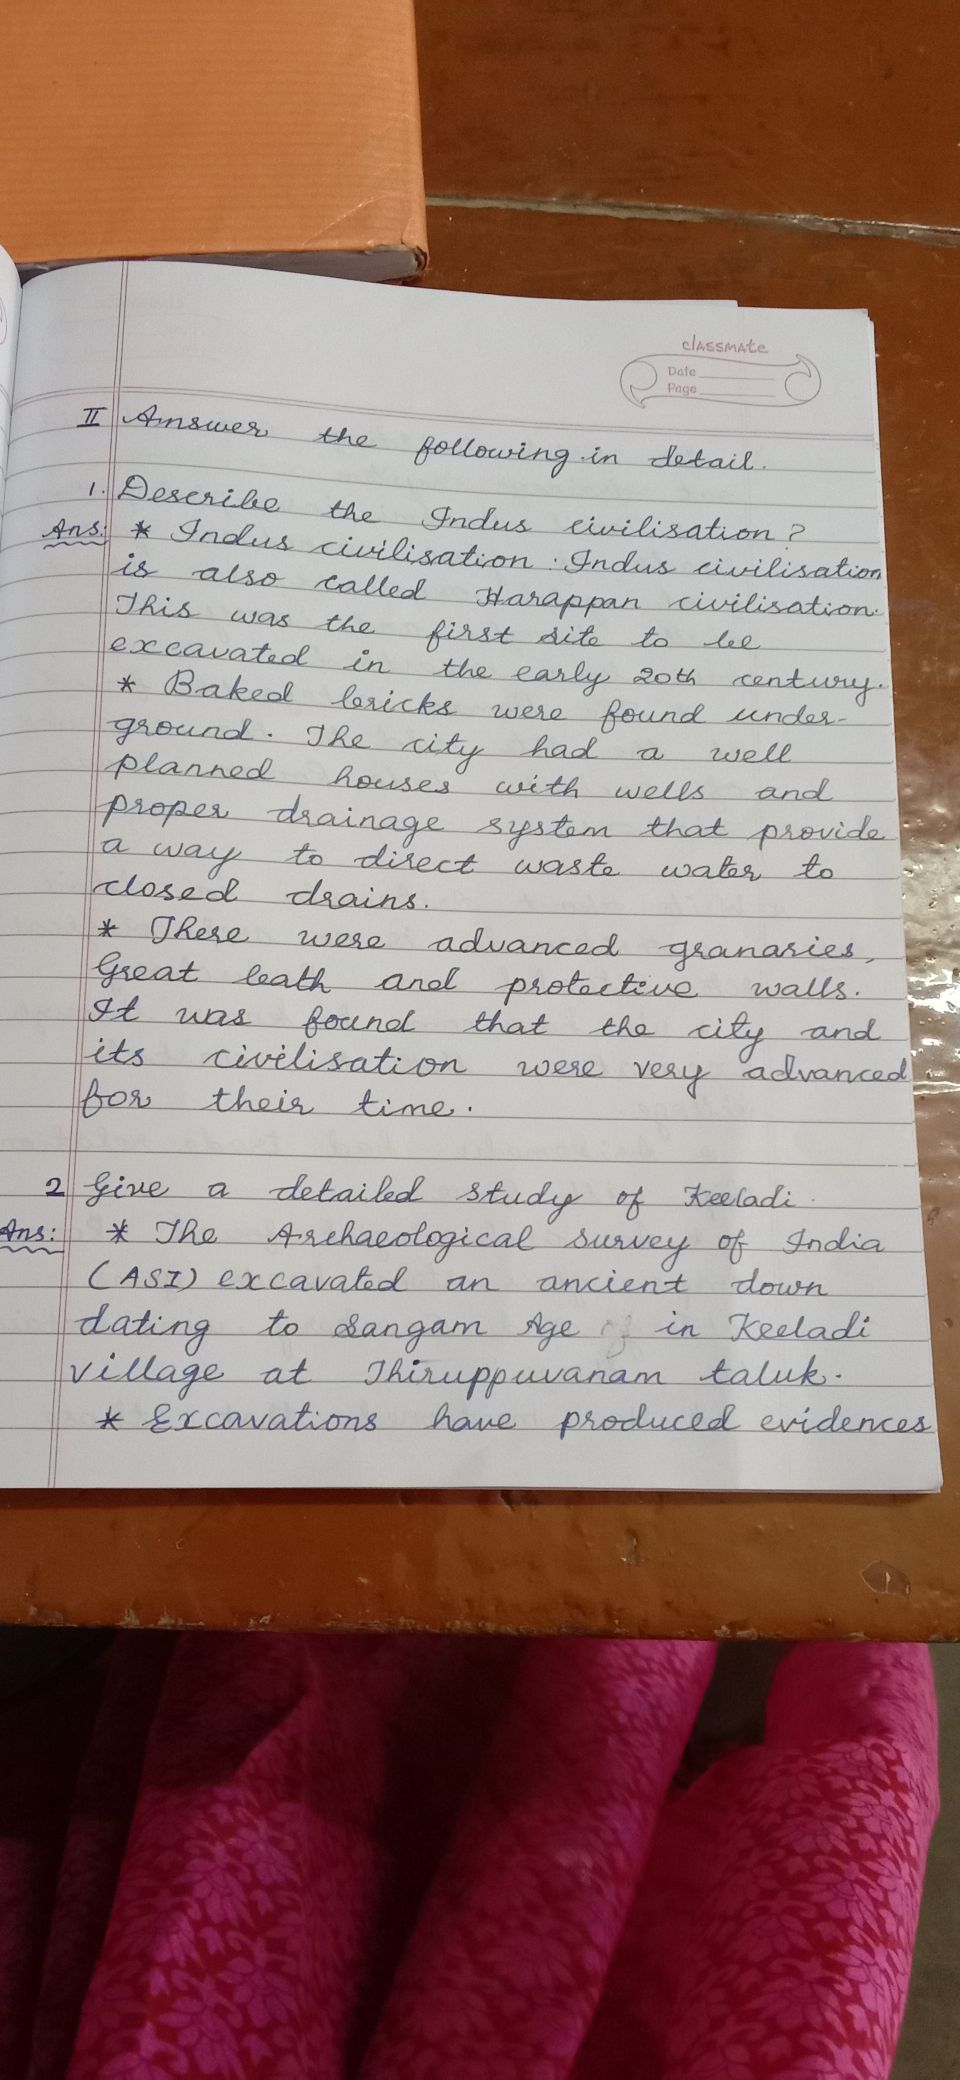 classmate
Date
Page
II Answer the following in detail.
1. Describe the Indus civilisation?
Ans: * Indus civilisation : Indus civilisation
is also called Harappan civilisation.
This was the first site to be
excavated in the early 20th century.
* Baked bricks were found under-
ground. The city had a well
planned houses with wells and
proper drainage system that provide
a way to direct waste water to
closed drains.
* There were advanced granaries,
Great bath and protective walls.
It was found that the city and
its civilisation were very advanced
for their time.
2 Give a detailed study of Keeladi.
Ans: * The Archaeological survey of India
(ASI) excavated an ancient down
dating to Sangam Age in Keeladi
village at Thiruppuvanam taluk.
* Excavations have produced evidences